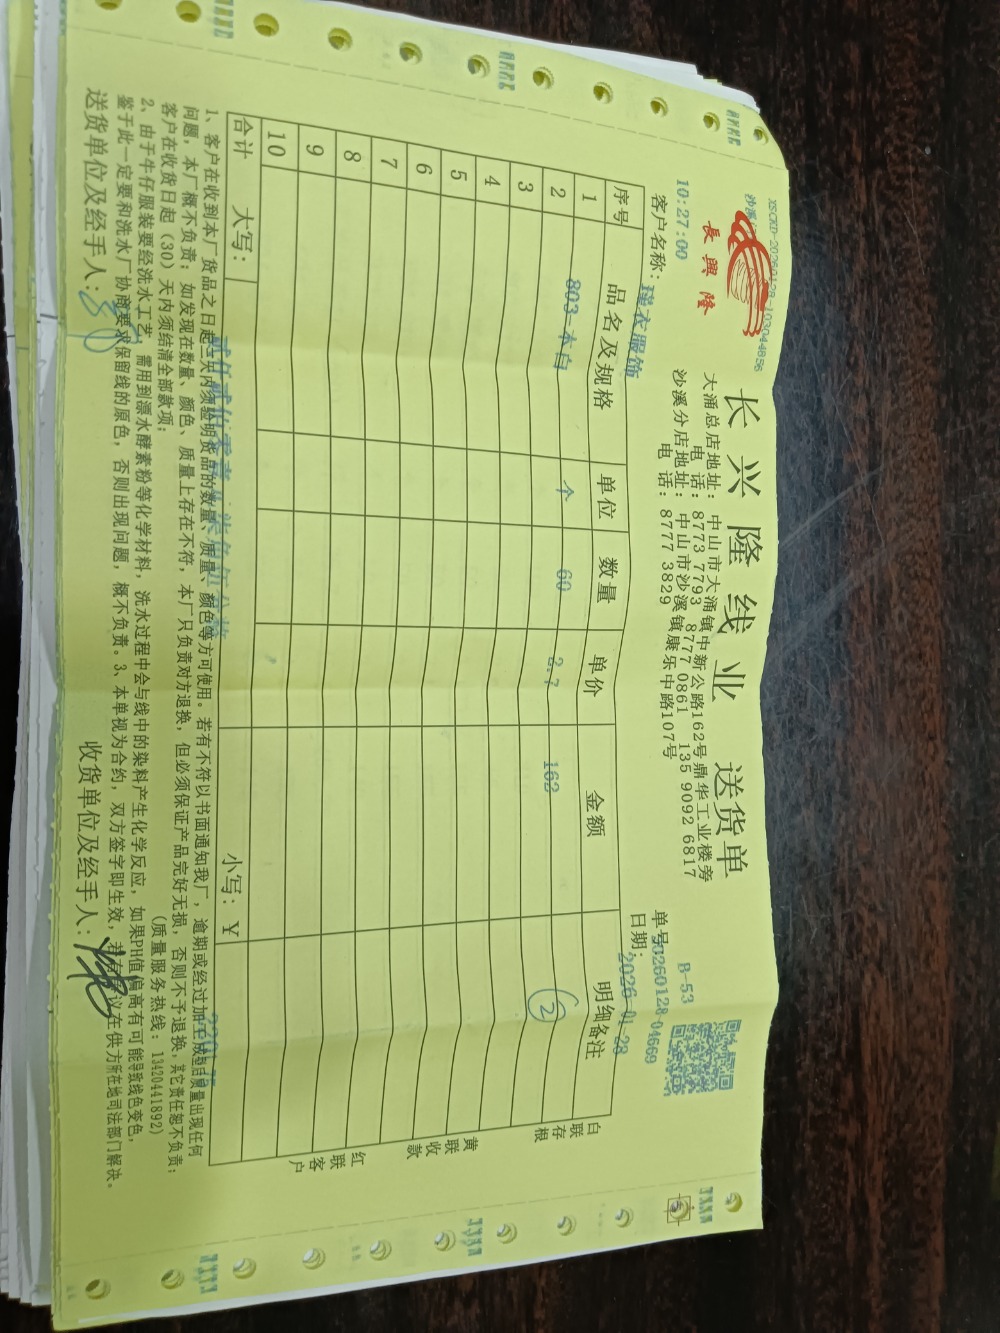 XSCKD-20260128-103044856
沙溪
長興隆
长兴隆线业 送货单
B-53
大涌总店地址：中山市大涌镇中新公路162号鼎华工业楼旁
电 话：8773 7793 8777 0861 135 9092 6817
沙溪分店地址：中山市沙溪镇康乐中路107号
电 话：8777 3829
10:27:00
单号：20260128-04669
客户名称：瑾衣服饰
日期：2026-01-28
序号 品名及规格 单位 数量 单价 金额 明细备注
1 803-本白 个 60 2.7 162 ②
2
3
4
5
6
7
8
9
10
合计 大写： 小写：￥
白联存根
黄联收款
红联客户
1、客户在收到本厂货品之日起三天内须验明货品的数量、质量、颜色等方可使用。若有不符以书面通知我厂，逾期或经过加工成型后质量出现任何
问题，本厂概不负责；如发现在数量、颜色、质量上存在不符，本厂只负责对方退换，但必须保证产品完好无损，否则不予退换，其它责任恕不负责；
客户在收货日起（30）天内须结清全部款项；
（质量服务热线：13420441892）
2、由于牛仔服装要经洗水工艺，需用到源水酵素粉等化学材料，洗水过程中会与线中的染料产生化学反应，如果PH值偏高有可能导致线色变色，
鉴于此一定要和洗水厂协商要求保留线的原色，否则出现问题，概不负责。3、本单视为合约，双方签字即生效，若有争议在供方所在地司法部门解决。
送货单位及经手人：
收货单位及经手人：